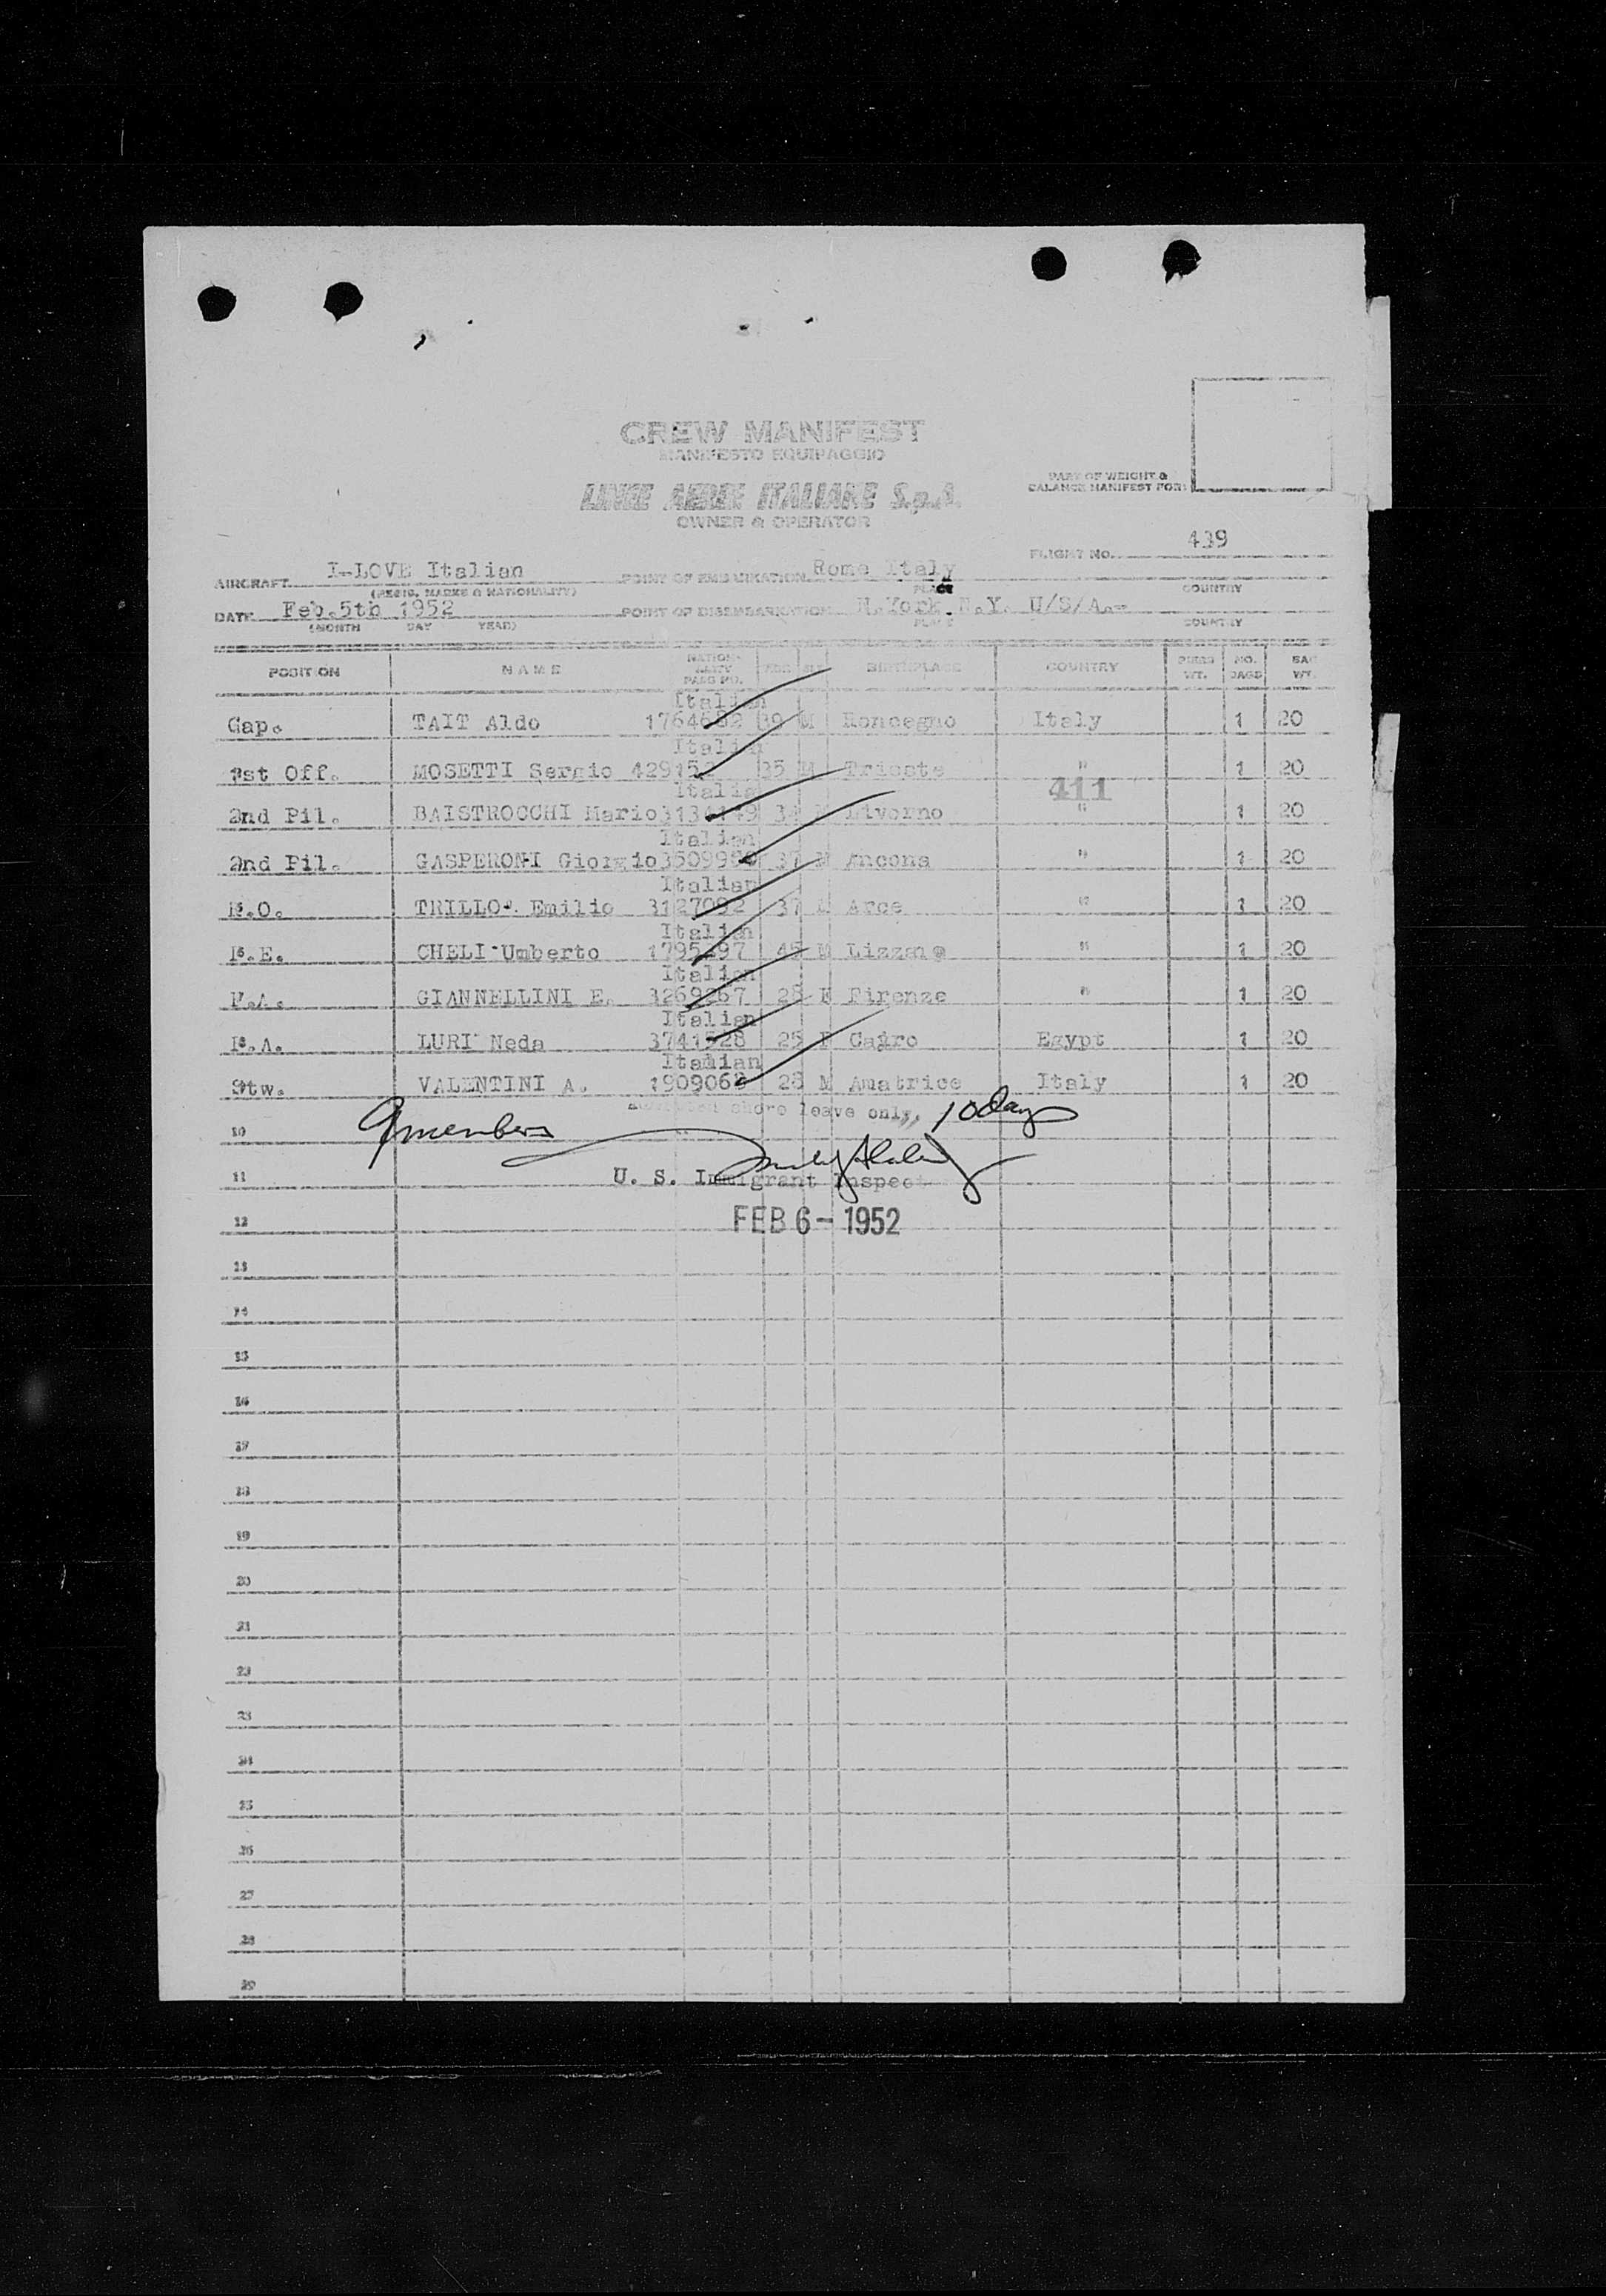 CREW MANIFEST
MANIFESTO EQUIPAGGIO
PART OF WEIGHT &
BALANCE MANIFEST FOR:
LINEE AEREE ITALIANE S.p.A.
OWNER & OPERATOR
FLIGHT NO. 439
AIRCRAFT I-LOVE Italian POINT OF EMBARKATION Rome Italy
(REGIS. MARKS & NATIONALITY) PLACE COUNTRY
DATE Feb.5th 1952 POINT OF DISEMBARKATION N.York N.Y. U/S/A.-
(MONTH DAY YEAR) PLACE COUNTRY
POSITION NAME NATION- ALITY PASS NO. AGE SEX BIRTHPLACE COUNTRY WT. NO. BAGS BAG WT.
Italian
Cap. TAIT Aldo 39 M Roncegno Italy 1 20
Italian
1st Off. MOSETTI Sergio 35 M Trieste " 1 20
Italian 411
2nd Pil. BAISTROCCHI Mario M Livorno " 1 20
Italian
2nd Pil. GASPERONI Giorgio 37 M Ancona " 1 20
Italian
TRILLO Emilio 3127092 37 M Arce " 1 20
Italian
CHELI Umberto 1795297 45 M " 1 20
Italian
GIANNELLINI E. 3269267 28 Firenze " 1 20
Italian
LURI Neda 3741528 25 F Cairo Egypt 1 20
Italian
Stw. VALENTINI A. 28 M Amatrice Italy 1 20
9 members admitted shore leave only, 10 days
10
11 U. S. Immigrant Inspect
12 FEB 6 - 1952
13
14
15
16
17
18
19
20
21
22
23
24
25
26
27
28
29